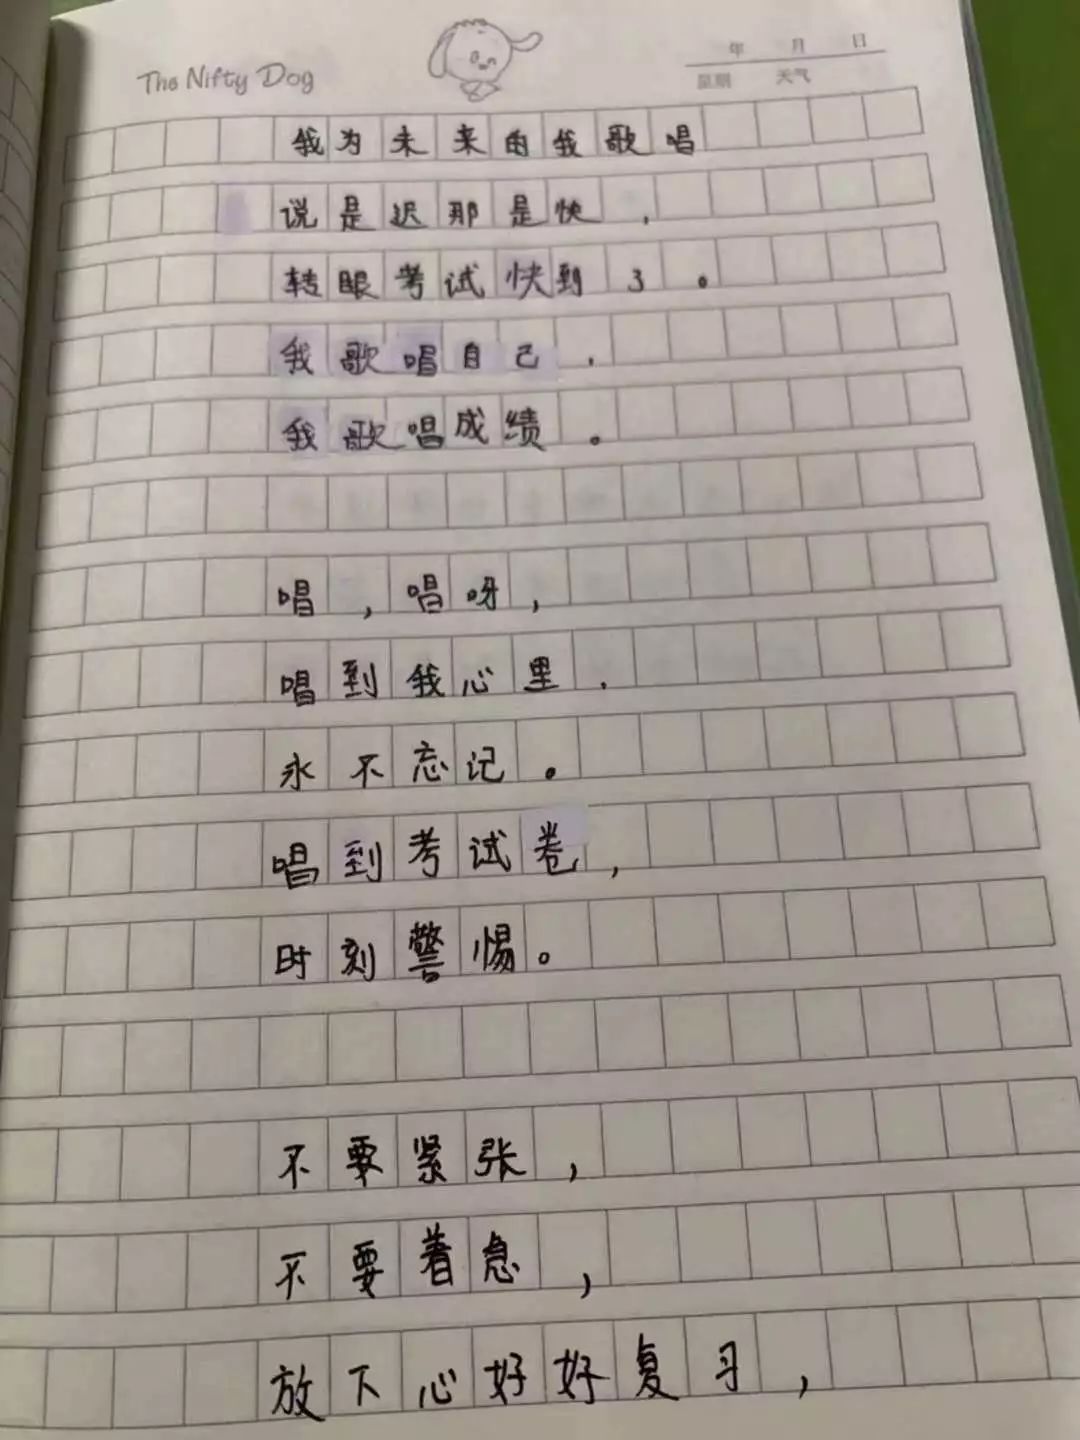 The Nifty Dog
年 月 日
星期 天气
我为未来的我歌唱
说是迟那是快，
转眼考试快到了。
我歌唱自己，
我歌唱成绩。
唱，唱呀，
唱到我心里，
永不忘记。
唱到考试卷，
时刻警惕。
不要紧张，
不要着急，
放下心好好复习，